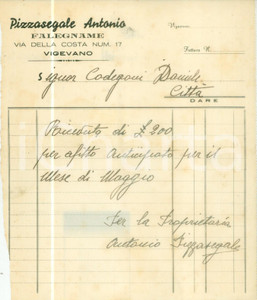 Pizzasegale Antonio
FALEGNAME
VIA DELLA COSTA NUM. 17
VIGEVANO
Vigevano,
Fattura N.
Signor Codegoni Daniele
Città
DARE
Acconto di £ 200
per afitto anticipato per il
Mese di Maggio
Per la Proprietaria
Antonio Pizzasegale